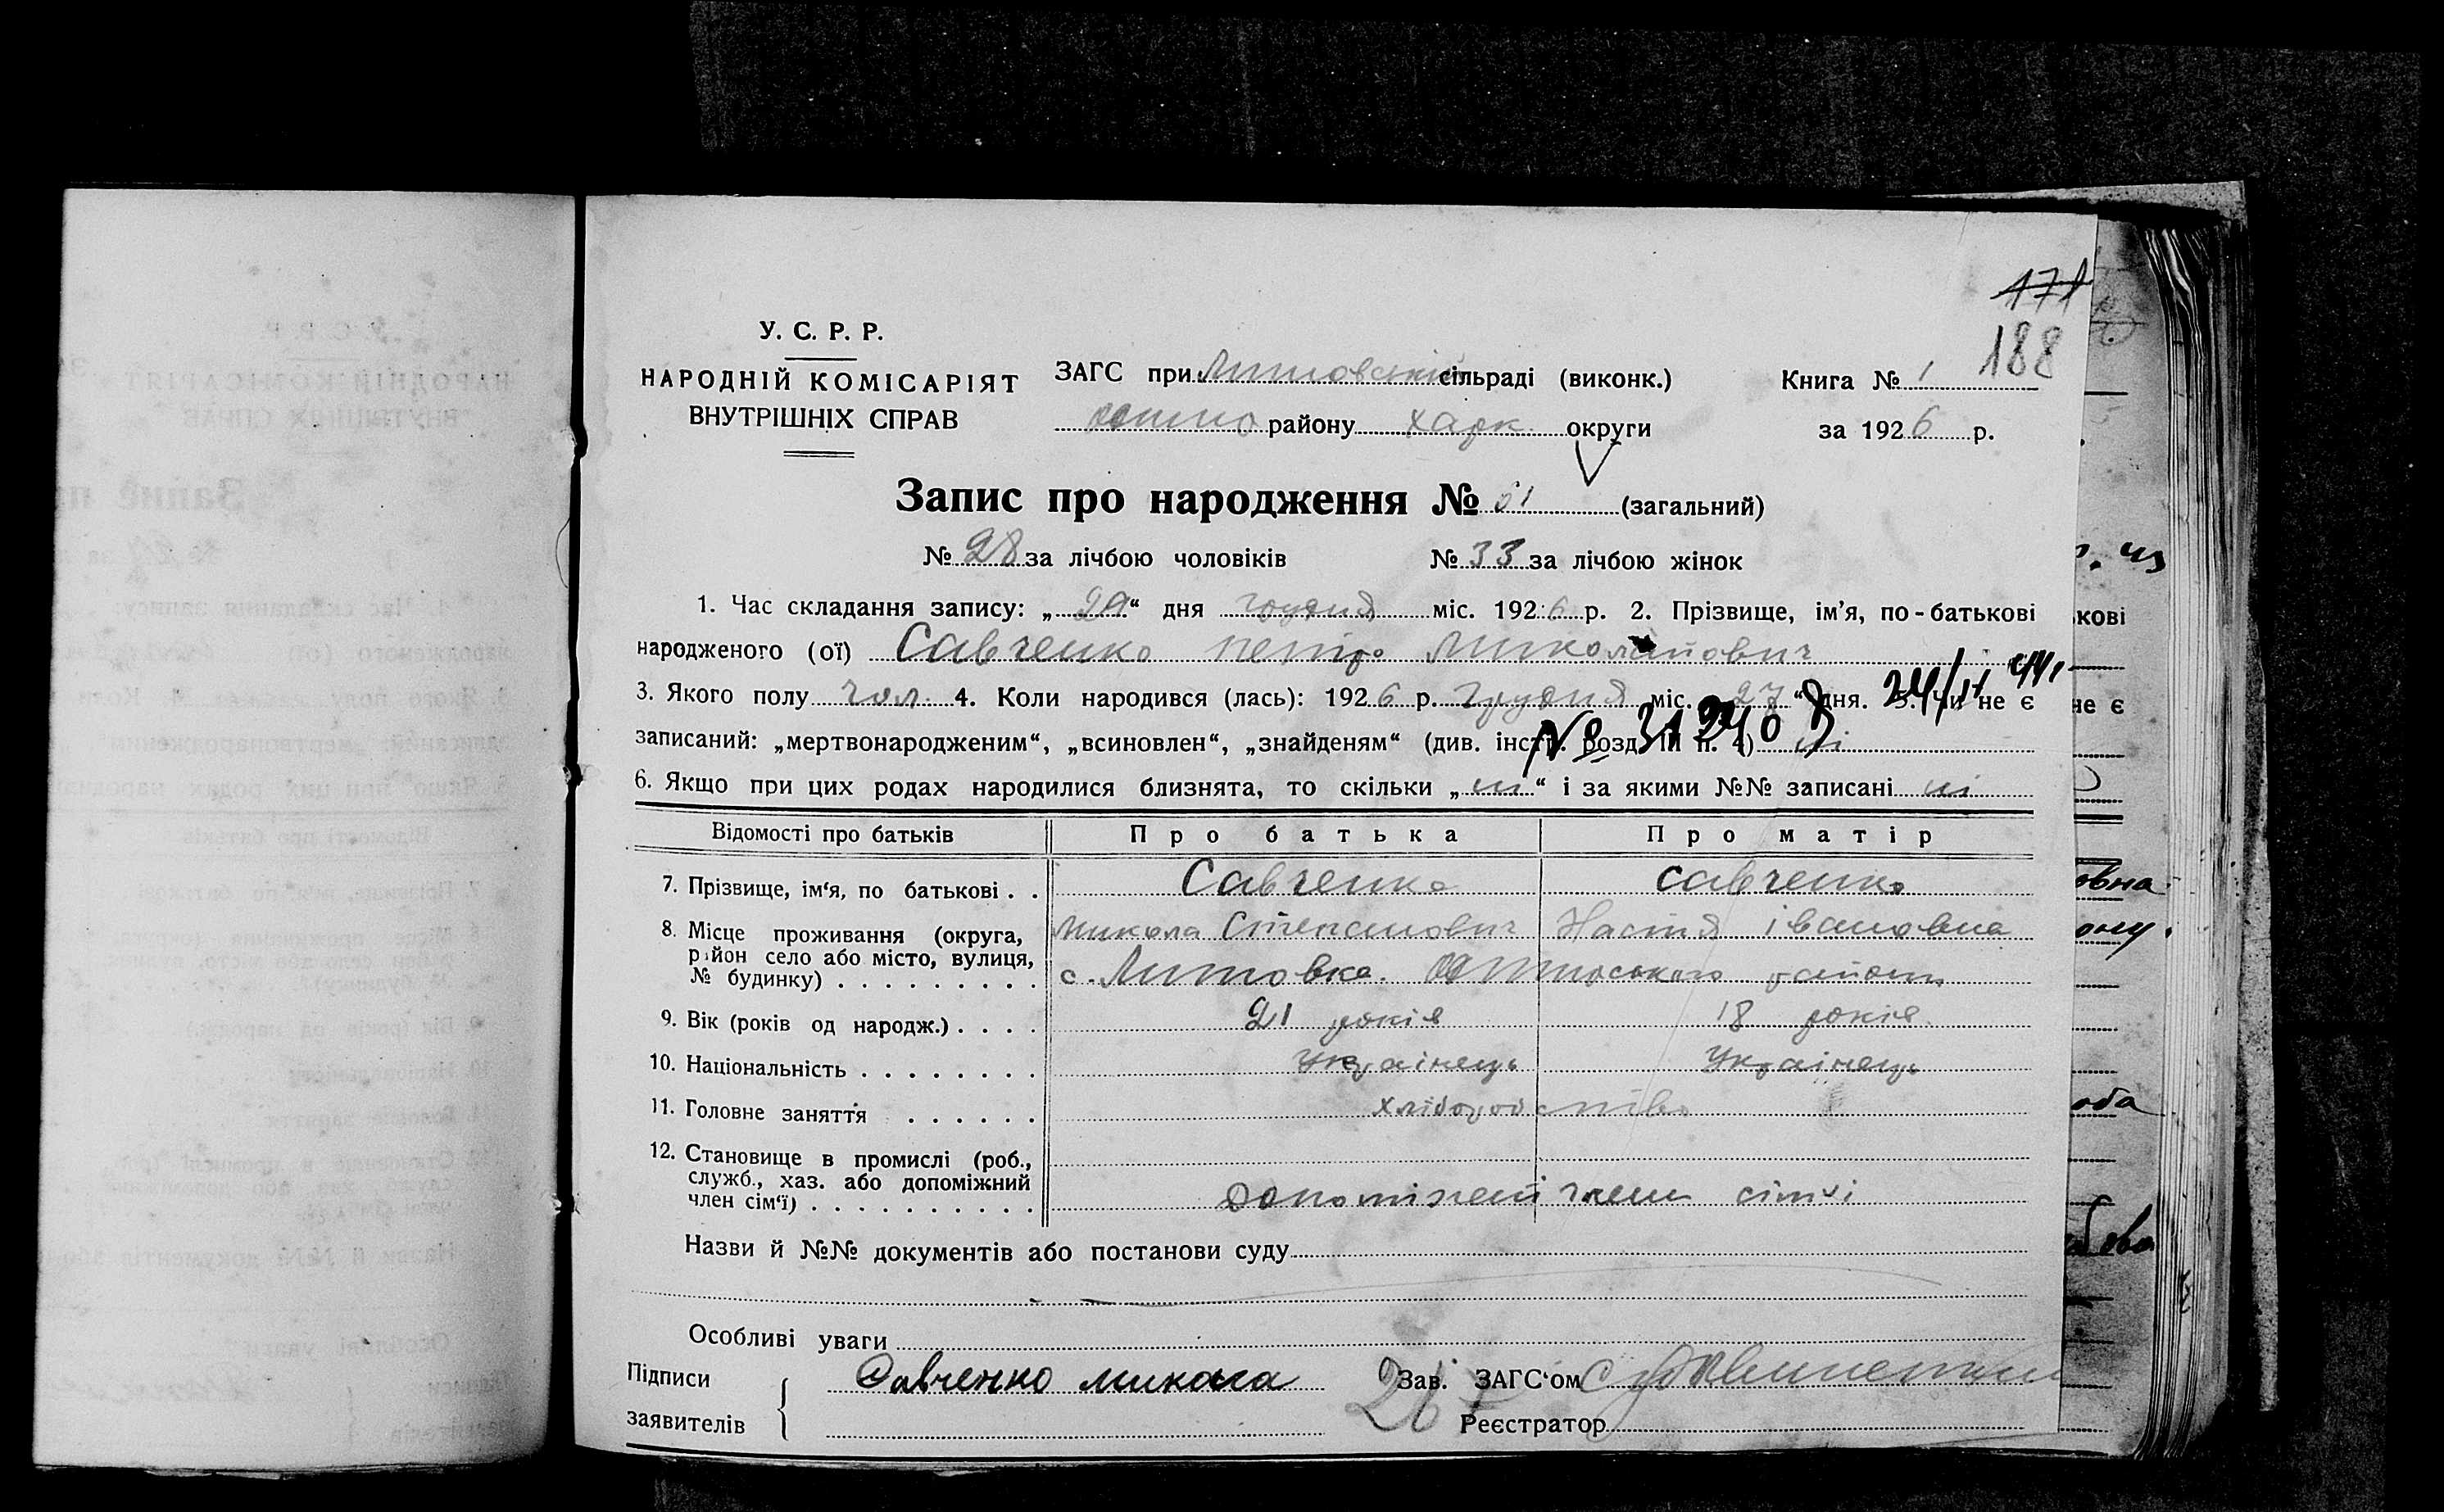 171
188
У. С. Р. Р.
НАРОДНІЙ КОМІСАРІЯТ
ВНУТРІШНІХ СПРАВ
ЗАГС при Литовській сільраді (виконк.)
району Харк. округи
Книга № 1
за 1926 р.
Запис про народження № 61 (загальний)
№ 28 за лічбою чоловіків № 33 за лічбою жінок
1. Час складання запису: „29“ дня грудня міс. 1926 р. 2. Прізвище, ім’я, по-батькові
народженого (ої) Савченко петро Миколайович
3. Якого полу чол. 4. Коли народився (лась): 1926 р. грудня міс. „27“ дня. 5. Чи не є
24/II 44
записаний: „мертвонародженим“, „всиновлен“, „знайденям“ (див. інстр. розд. III п. 4) ні
№ 31240
6. Якщо при цих родах народилися близнята, то скільки „ні“ і за якими №№ записані ні
Відомості про батьків Про батька Про матір
7. Прізвище, ім‘я, по батькові . . Савченко Савченко
Микола Степанович Настя івановна
8. Місце проживання (округа, район село або місто, вулиця, № будинку) . . . . . . . . . с. Литовка. району
9. Вік (років од народж.) . . . . 21 років 18 років
10. Національність . . . . . . . . Українець Українець
11. Головне заняття . . . . . . хліборобство
12. Становище в промислі (роб.,
служб., хаз. або допоміжний
член сім‘ї) . . . . . . . . . . допоміжний член сімьї
Назви й №№ документів або постанови суду
Особливі уваги
Підписи
заявителів
Савченко микола
Зав. ЗАГС‘ом
267
Реєстратор